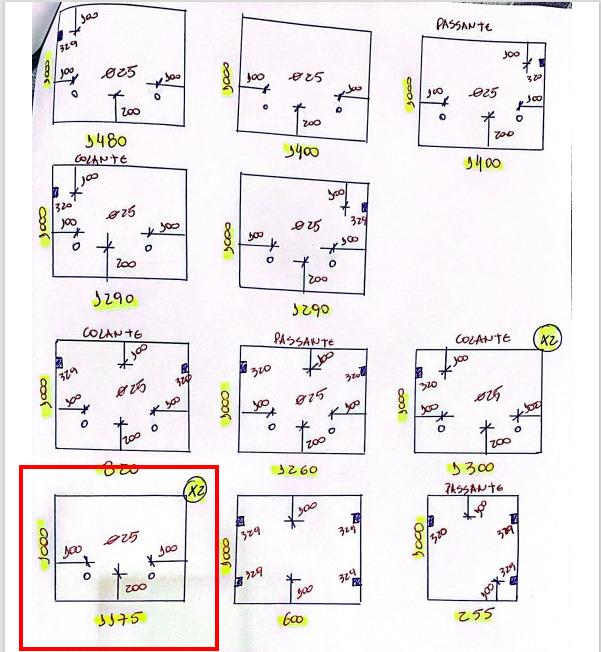 100
329
1000
100
Ø25
100
200
1480
1000
100
Ø25
100
200
1400
PASSANTE
100
320
1000
100
Ø25
100
200
1400
COLANTE
100
320
1000
100
Ø25
100
200
1290
100
329
1000
100
Ø25
100
200
1290
COLANTE
100
329
320
1000
Ø25
100
100
200
820
PASSANTE
100
320
320
1000
Ø25
100
100
200
1260
COLANTE
X2
100
320
1000
Ø25
100
100
200
1300
X2
1000
100
Ø25
100
200
1175
100
329
329
1000
329
329
100
600
PASSANTE
100
320
329
1000
329
100
255